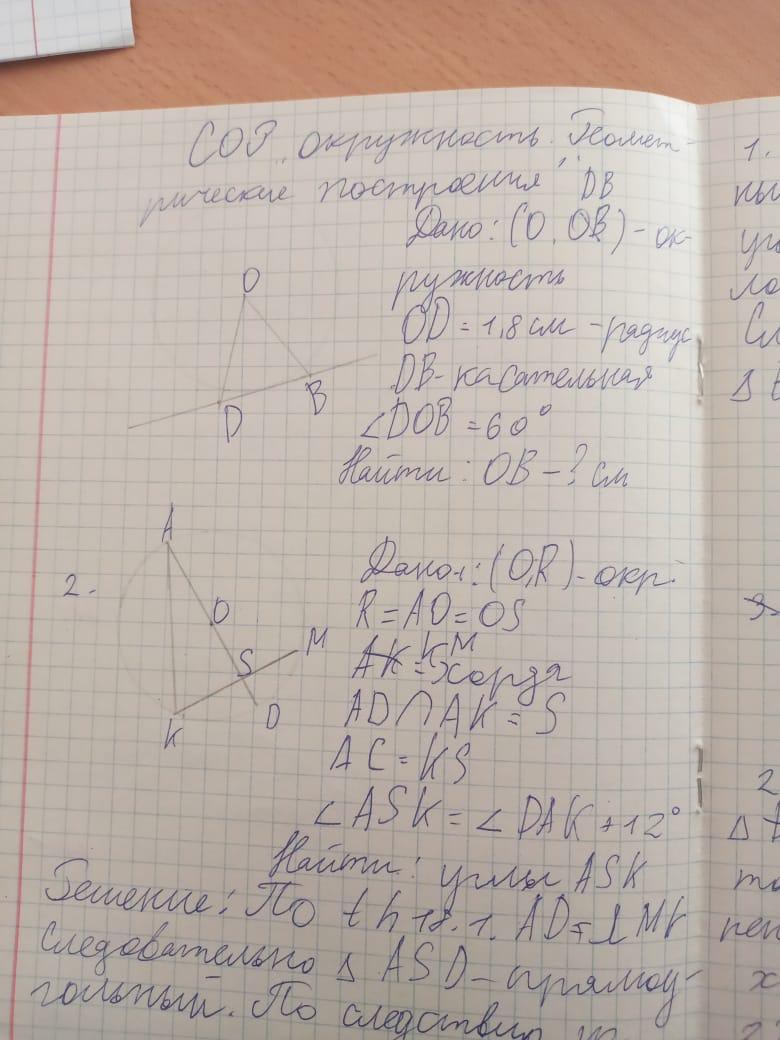 СОР "Окружность. Геомет-
рические построения"
DB
Дано: (O, OB) - ок-
ружность
OD = 1,8 см - радиус
DB - касательная
∠DOB = 60°
Найти: OB - ? см
O
D
B
2.
A
O
S
M
K
D
Дано: (O,R) - окр.
R = AO = OS
KM
AK = хорда
AD ∩ AK = S
AC = KS
∠ASK = ∠DAK + 12°
Найти: углы ASK
Решение: По th 18.1. AD ⊥ MK
Следовательно Δ ASD - прямоу-
гольный. По следствию
1.
ны
2
Δ